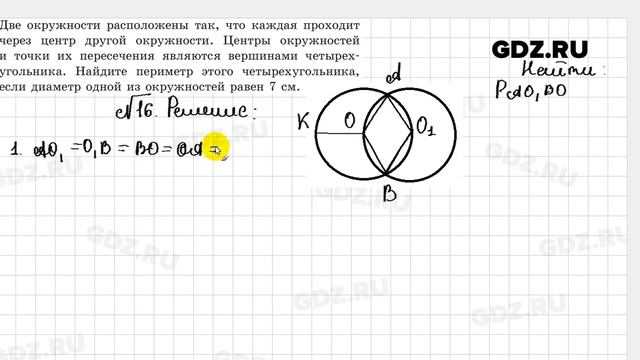 Две окружности расположены так, что каждая проходит
через центр другой окружности. Центры окружностей
и точки их пересечения являются вершинами четырех-
угольника. Найдите периметр этого четырехугольника,
если диаметр одной из окружностей равен 7 см.
GDZ.RU
Найти:
PAO₁BO
№16. Решение:
1. AO₁ = O₁B = BO = OA =
A
K
O
O₁
B
GDZ.RU
GDZ.RU
GDZ.RU
GDZ.RU
GDZ.RU
GDZ.RU